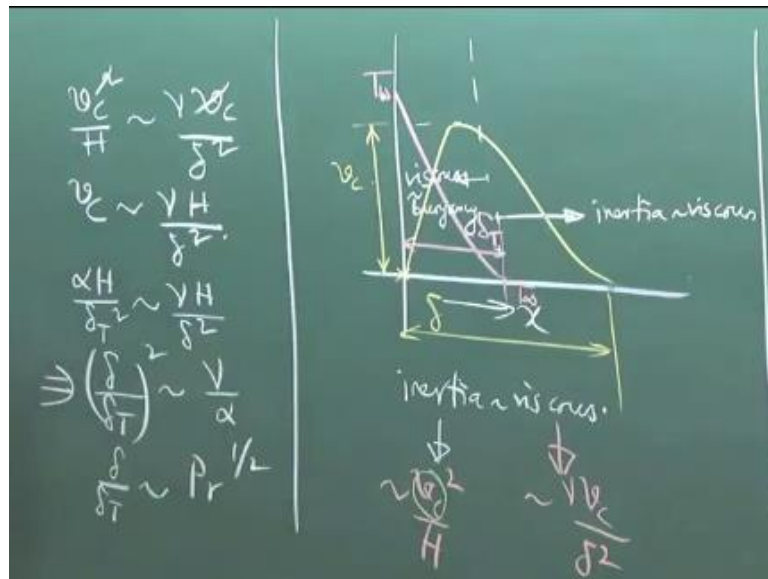 v_c²/H ~ νv_c/δ²
v_c ~ νH/δ².
αH/δ_T² ~ νH/δ²
⇒ (δ/δ_T)² ~ ν/α
δ/δ_T ~ Pr^1/2
T_w
v_c
viscous
~
buoyancy
δ_T
inertia ~ viscous
T_∞
δ
x
inertia ~ viscous.
~ (v_c)²/H ~ νv_c/δ²